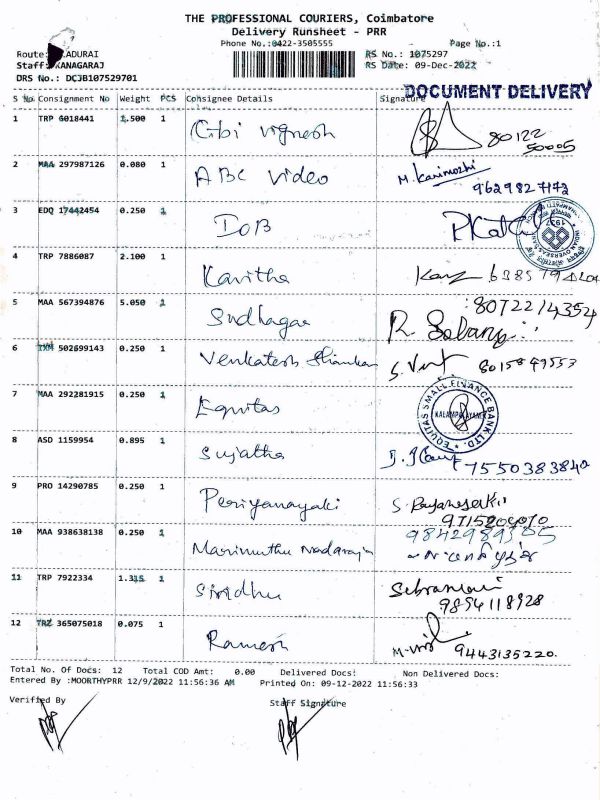 THE PROFESSIONAL COURIERS, Coimbatore
Delivery Runsheet - PRR
Phone No.:0422-3505555 Page No.:1
Route: ADURAI RS No.: 1075297
Staff: KANAGARAJ RS Date: 09-Dec-2022
DRS No.: DCJB107529701
DOCUMENT DELIVERY
S No Consignment No Weight PCS Consignee Details Signature
1 TRP 6018441 1.500 1 Cibi vignesh 80122
50005
2 MAA 297987126 0.080 1 ABC video M. Kanimozhi
9629827172
3 EDQ 17442454 0.250 1 IOB
INDIAN OVERSEAS BANK
1937
4 TRP 7886087 2.100 1 Kavitha
5 MAA 567394876 5.050 1 Sudhagar 8072214354
6 502699143 0.250 1 Venkatesh Shankar 8015849553
7 MAA 292281915 0.250 1 Equitas
EQUITAS SMALL FINANCE BANK LTD.
8 ASD 1159954 0.895 1 Sujatha 7550383840
9 PRO 14290785 0.250 1 Periyanayaki
10 MAA 938638138 0.250 1 Marimuthu Nadarajn
11 TRP 7922334 1.315 1 Sindhu
9894118928
12 TRZ 365075018 0.075 1 Ramesh 9443135220.
Total No. Of Docs: 12 Total COD Amt: 0.00 Delivered Docs: Non Delivered Docs:
Entered By :MOORTHYPRR 12/9/2022 11:56:36 AM Printed On: 09-12-2022 11:56:33
Verified By Staff Signature